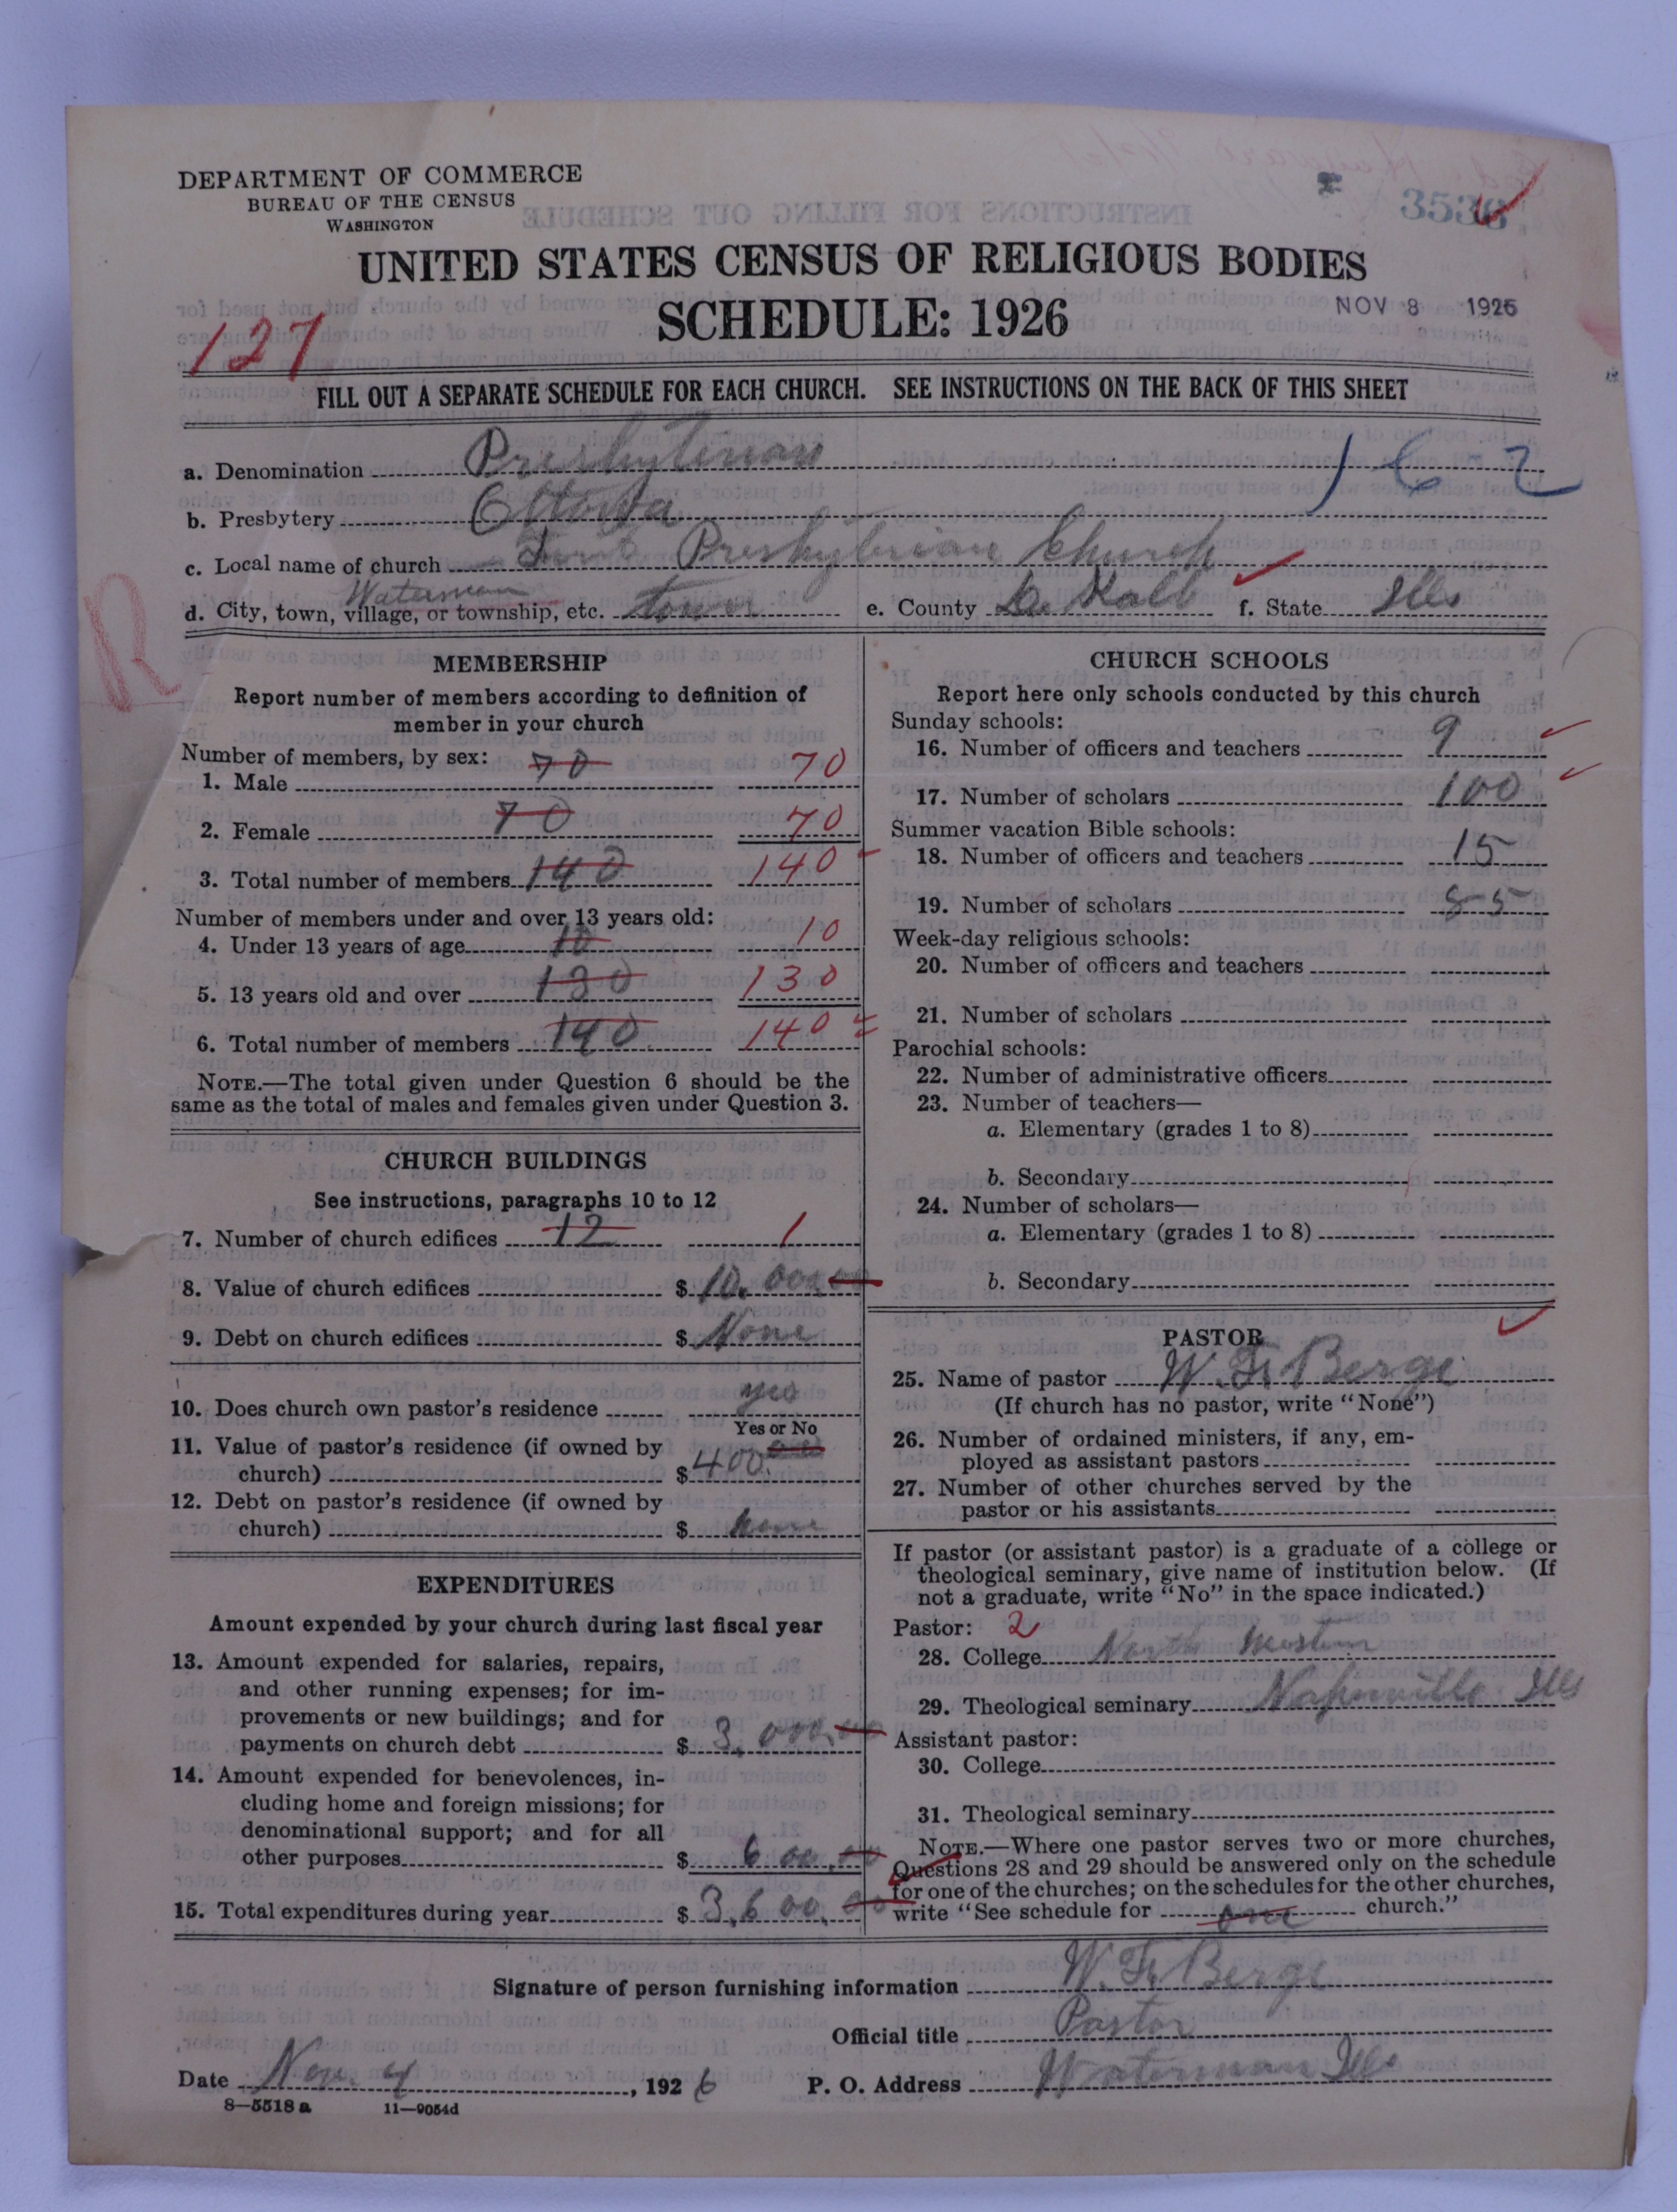 DEPARTMENT OF COMMERCE
BUREAU OF THE CENSUS
WASHINGTON
3538
UNITED STATES CENSUS OF RELIGIOUS BODIES
SCHEDULE: 1926
NOV 8 1926
127
FILL OUT A SEPARATE SCHEDULE FOR EACH CHURCH. SEE INSTRUCTIONS ON THE BACK OF THIS SHEET
a. Denomination Presbyterian 162
b. Presbytery Ottowa
c. Local name of church First Presbyterian Church
Waterman
d. City, town, village, or township, etc. town e. County De Kalb f. State Ills
R
MEMBERSHIP
Report number of members according to definition of
member in your church
Number of members, by sex:
1. Male 70 70
2. Female 70 70
3. Total number of members 140 140
Number of members under and over 13 years old:
4. Under 13 years of age 10 10
5. 13 years old and over 130 130
6. Total number of members 140 140
NOTE.—The total given under Question 6 should be the
same as the total of males and females given under Question 3.
CHURCH BUILDINGS
See instructions, paragraphs 10 to 12
7. Number of church edifices 12 1
8. Value of church edifices $ 10.000.00
9. Debt on church edifices $ None
10. Does church own pastor's residence yes
Yes or No
11. Value of pastor's residence (if owned by
church) $ 400.
12. Debt on pastor's residence (if owned by
church) $ none
EXPENDITURES
Amount expended by your church during last fiscal year
13. Amount expended for salaries, repairs,
and other running expenses; for im-
provements or new buildings; and for
payments on church debt $ 3,000.00
14. Amount expended for benevolences, in-
cluding home and foreign missions; for
denominational support; and for all
other purposes $ 600.00
15. Total expenditures during year $ 3,600.00
CHURCH SCHOOLS
Report here only schools conducted by this church
Sunday schools:
16. Number of officers and teachers 9
17. Number of scholars 100
Summer vacation Bible schools:
18. Number of officers and teachers 15
19. Number of scholars 85
Week-day religious schools:
20. Number of officers and teachers
21. Number of scholars
Parochial schools:
22. Number of administrative officers
23. Number of teachers—
a. Elementary (grades 1 to 8)
b. Secondary
24. Number of scholars—
a. Elementary (grades 1 to 8)
b. Secondary
PASTOR
25. Name of pastor W. Fr. Berge
(If church has no pastor, write "None")
26. Number of ordained ministers, if any, em-
ployed as assistant pastors
27. Number of other churches served by the
pastor or his assistants
If pastor (or assistant pastor) is a graduate of a college or
theological seminary, give name of institution below. (If
not a graduate, write "No" in the space indicated.)
Pastor: 2
28. College North Western
29. Theological seminary Napierville Ills
Assistant pastor:
30. College
31. Theological seminary
NOTE.—Where one pastor serves two or more churches,
Questions 28 and 29 should be answered only on the schedule
for one of the churches; on the schedules for the other churches,
write "See schedule for one church."
Signature of person furnishing information W. Fr. Berge
Official title Pastor
Date Nov. 4, 1926 P. O. Address Waterman Ills
8—5518 a 11—9054d